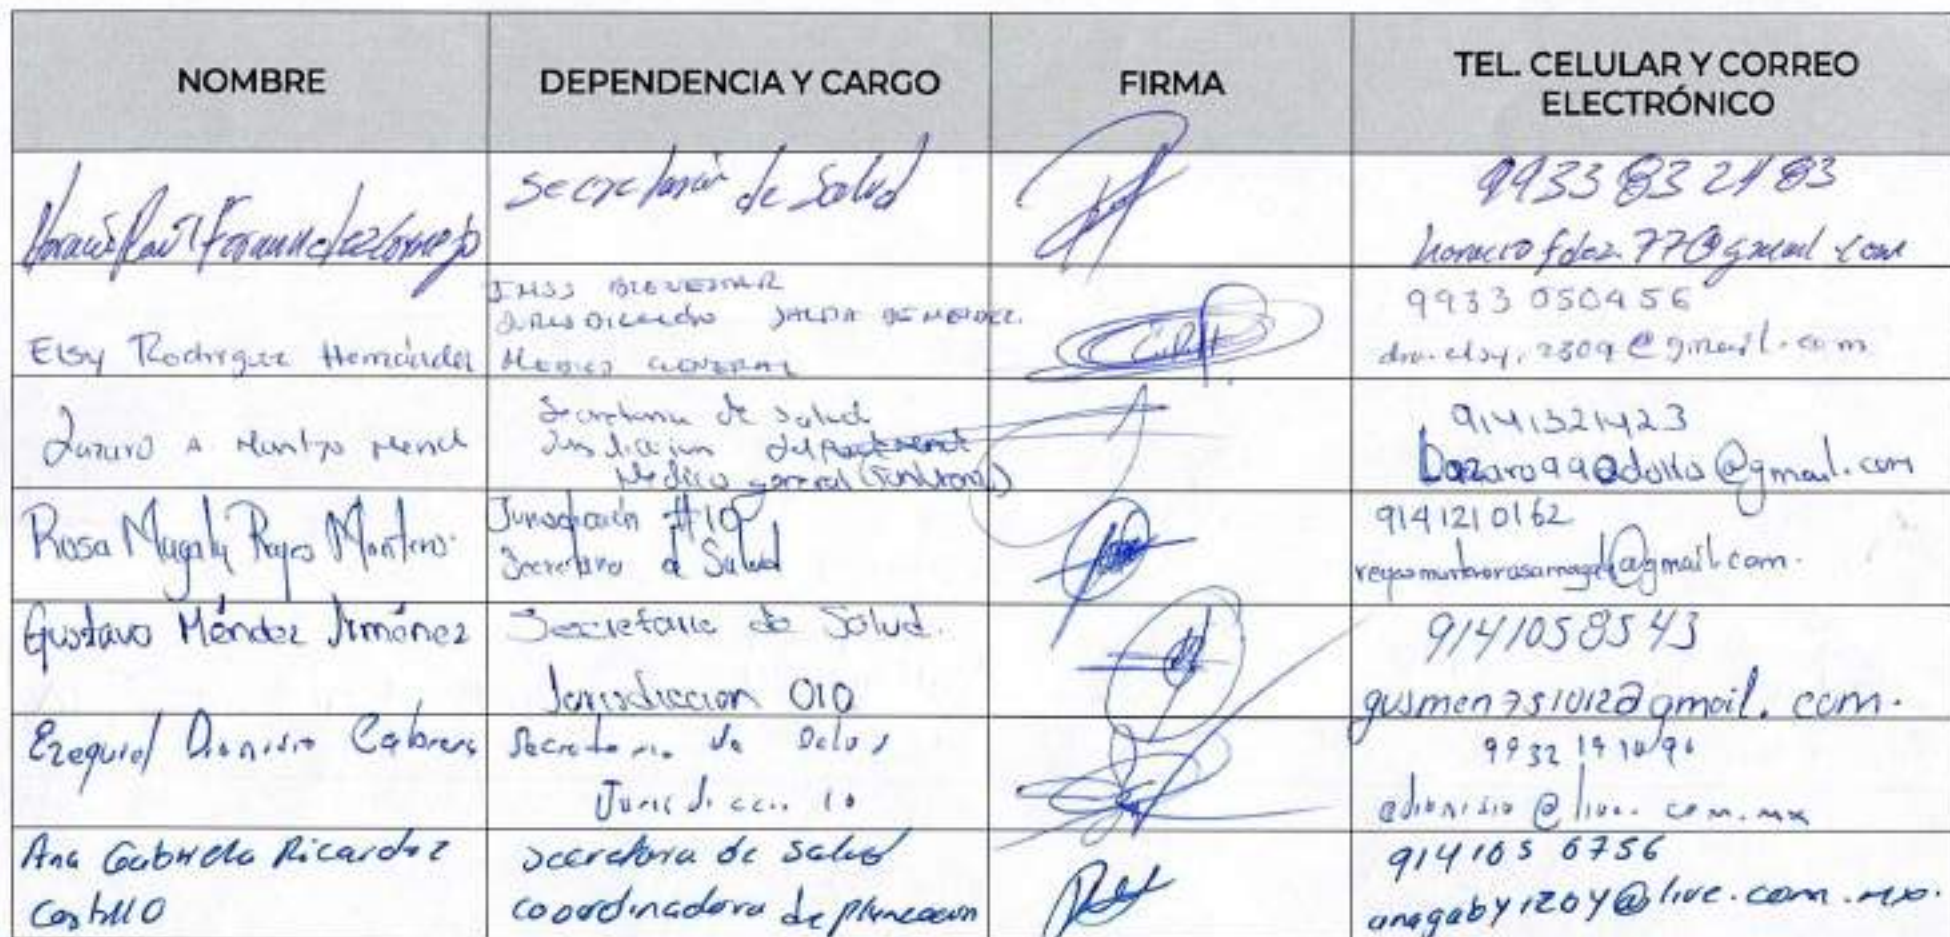 NOMBRE
DEPENDENCIA Y CARGO
FIRMA
TEL. CELULAR Y CORREO
ELECTRÓNICO
Horacio Raúl Fernandez Cornejo
Secretaría de Salud
horaciofdez.77@gmail.com
Elsy Rodriguez Hernández
IMSS BIENESTAR
JALPA DE MENDEZ.
MEDICO GENERAL
9933 050456
dra.elsy.2309@gmail.com
A.
Secretaria de Salud
Medico general
9141321423
@gmail.com
Rosa Magaly Reyes Montero.
Jurisdicción #10
Secretaria de Salud
9141210162
@gmail.com.
Gustavo Méndez Jiménez
Secretaria de Salud.
Jurisdiccion 010
9141058543
gusmen751012@gmail.com.
Ezequiel Dionisio Cabrera
Secretaria de Salud
10
edionisio@live.com.mx
Ana Gabriela Ricardez
Castillo
secretaria de salud
coordinadora de planeacion
914105 6756
anagaby1204@live.com.mx.